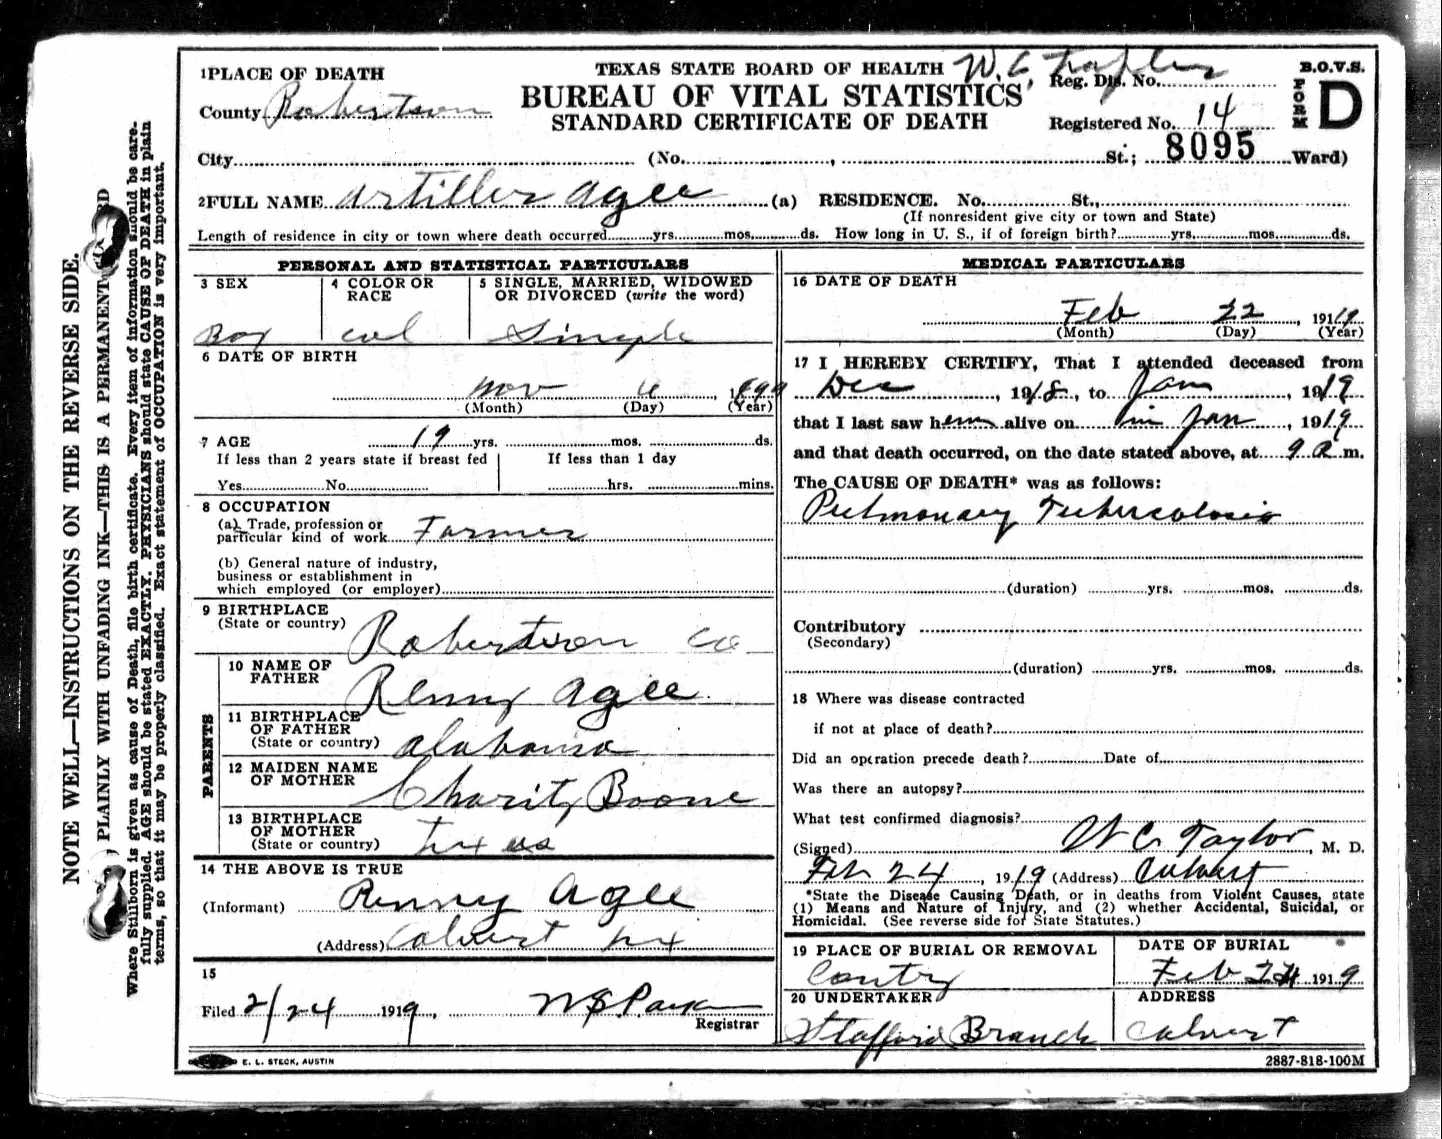 1 PLACE OF DEATH
TEXAS STATE BOARD OF HEALTH W. C. Reg. Dis. No.
B.O.V.S.
FORM D
County Robertson
BUREAU OF VITAL STATISTICS
STANDARD CERTIFICATE OF DEATH
Registered No. 14
8095
City (No. , St.; Ward)
2 FULL NAME Artiller Agee (a) RESIDENCE. No. St.,
(If nonresident give city or town and State)
Length of residence in city or town where death occurred yrs. mos. ds. How long in U. S., if of foreign birth? yrs. mos. ds.
PERSONAL AND STATISTICAL PARTICULARS
3 SEX
Boy
4 COLOR OR RACE
col
5 SINGLE, MARRIED, WIDOWED
OR DIVORCED (write the word)
Single
6 DATE OF BIRTH
Nov 6, 1899
(Month) (Day) (Year)
7 AGE 19 yrs. mos. ds.
If less than 2 years state if breast fed
Yes No
If less than 1 day
hrs. mins.
8 OCCUPATION
(a) Trade, profession or
particular kind of work Farmer
(b) General nature of industry,
business or establishment in
which employed (or employer)
9 BIRTHPLACE
(State or country) Robertson Co
PARENTS
10 NAME OF
FATHER Renny Agee
11 BIRTHPLACE
OF FATHER
(State or country) Alabama
12 MAIDEN NAME
OF MOTHER Charity Boone
13 BIRTHPLACE
OF MOTHER
(State or country) Texas
14 THE ABOVE IS TRUE
(Informant) Renny Agee
(Address) Calvert Tex
15
Filed 2/24 1919,
Registrar
MEDICAL PARTICULARS
16 DATE OF DEATH
Feb 22, 1919
(Month) (Day) (Year)
17 I HEREBY CERTIFY, That I attended deceased from
Dec, 1918, to Jan, 1919
that I last saw hem alive on in Jan, 1919
and that death occurred, on the date stated above, at 9 a m.
The CAUSE OF DEATH* was as follows:
Pulmonary Tuberculosis
(duration) yrs. mos. ds.
Contributory
(Secondary)
(duration) yrs. mos. ds.
18 Where was disease contracted
if not at place of death?
Did an operation precede death? Date of
Was there an autopsy?
What test confirmed diagnosis?
(Signed) W C Taylor, M. D.
Feb 24, 1919 (Address) Calvert
*State the Disease Causing Death, or in deaths from Violent Causes, state
(1) Means and Nature of Injury, and (2) whether Accidental, Suicidal, or
Homicidal. (See reverse side for State Statutes.)
19 PLACE OF BURIAL OR REMOVAL
DATE OF BURIAL
Feb 24 1919
20 UNDERTAKER
Stafford Branch
ADDRESS
Calvert
E. L. STECK, AUSTIN
2887-818-100M
NOTE WELL—INSTRUCTIONS ON THE REVERSE SIDE.
PLAINLY WITH UNFADING INK—THIS IS A PERMANENT
Where Stillborn is given as cause of Death, file birth certificate. Every item of information should be care-
fully supplied. AGE should be stated EXACTLY. PHYSICIANS should state CAUSE OF DEATH in plain
terms, so that it may be properly classified. Exact statement of OCCUPATION is very important.